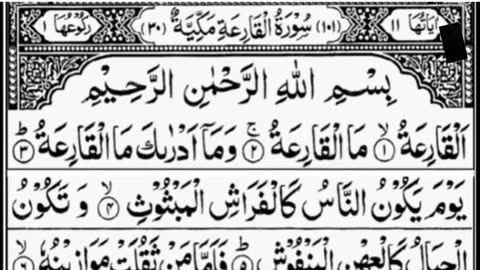 اٰیَاتُهَا ۱۱ (۱۰۱) سُوْرَةُ الْقَارِعَةِ مَكِّیَّةٌ (۳۰) رُكُوْعُهَا ۱
بِسْمِ اللّٰهِ الرَّحْمٰنِ الرَّحِیْمِ
اَلْقَارِعَةُ ۙ﴿۱﴾ مَا الْقَارِعَةُ ۚ﴿۲﴾ وَمَاۤ اَدْرٰىكَ مَا الْقَارِعَةُ ؕ﴿۳﴾
یَوْمَ یَكُوْنُ النَّاسُ كَالْفَرَاشِ الْمَبْثُوْثِ ۙ﴿۴﴾ وَ تَكُوْنُ
الْجِبَالُ كَالْعِهْنِ الْمَنْفُوْشِ ؕ﴿۵﴾ فَاَمَّا مَنْ ثَقُلَتْ مَوَازِیْنُهٗ ۙ﴿۶﴾